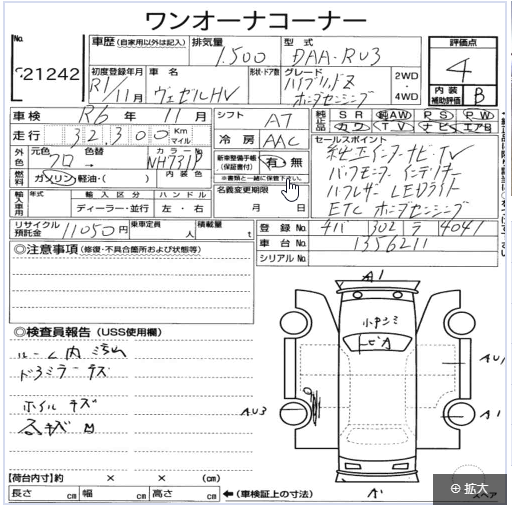 ワンオーナーコーナー
No.
21242
車歴 (自家用以外は記入)
排気量 1,500
型式 DAA-RU3
評価点 4
初度登録年月 R1/11月
車名 ヴェゼルHV
形状・ドア数
グレード ハイブリッドZ ホンダセンシング
2WD
・
4WD
内装 補助評価 B
車検 R6年 11月
シフト AT
純正品 SR 純AW PS PW
カワ TV ナビ エアB
走行 32,300 Km マイル
冷房 AAC
セールスポイント
純正インターナビ・TV
外色 元色 クロ → 色替 カラーNo. NH731P
新車整備手帳 (保証書付) 有・無
※書類と一緒に保管下さい。
燃料 ガソリン・軽油・( ) 内装色
名義変更期限
月 日
LEDライト
ETC ホンダセンシング
輸入車用 年式 輸入区分 ハンドル
ディーラー・並行 左・右
リサイクル預託金 11050円 乗車定員 人 積載量 t
登録No. 302 ラ 4041
車台No. 1356211
シリアルNo.
◎注意事項 (修復・不具合箇所および状態等)
◎検査員報告 (USS使用欄)
ルーム内汚れ
ドラミラーキズ
ホイルキズ
A1
小キズ
トビA
AU1
AU3
A1
【荷台内寸】約 × × (cm)
長さ cm 幅 cm 高さ cm ←(車検証上の寸法)
スペア
拡大